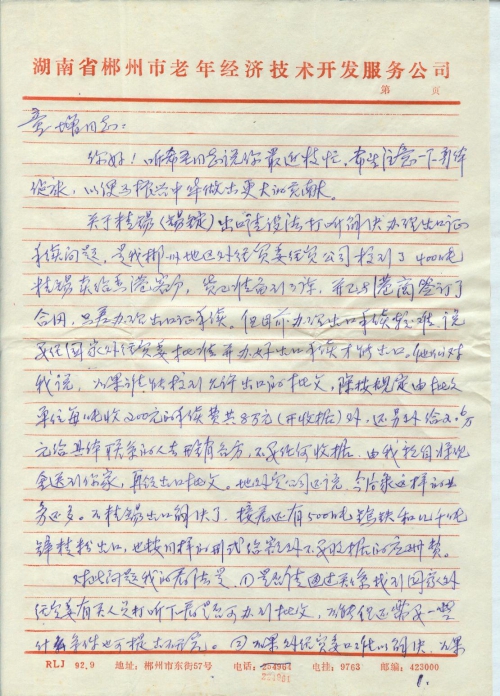 湖南省郴州市老年经济技术开发服务公司
第 页
童增同志：
你好！听希圣同志说你最近较忙，希望注意一下身体
健康，以便为振兴中华做出更大的贡献。
关于精锡（锡锭）出口请设法打听解决办理出口证
手续问题，是我郴州地区外经贸委经贸公司找到了400吨
精锡卖给香港客户，货已准备到了，并已与港商签订了
合同，只差办理出口证手续。但目前办理出口手续较难，说
要经国家外经贸委批准并办好出口手续才能出口，他们对
我说，如果谁能找到允许出口的批文，除按规定由批文
单位每吨收200元的手续费共8万元（开收据）外，还另外给
元给具体联系的人去酬有各方，不要任何收据，由我亲自将现
金送到你家，再给出口批文。地外贸公司还说，今后象这样的业
务还多。不精锡出口解决了，接着还有500吨钨铁和几千吨
锌精粉出口，也按同样的形式给予额外不要收据的应酬费。
对此问题我的看法是，①是否请通过关系找到国家外
经贸委有关人员打听下看是否可办到批文，
什么条件也可提出研究。②如果外经贸委口
RLJ 92.9 地址：郴州市东街57号 电话： 电挂：9763 邮编：423000
1.